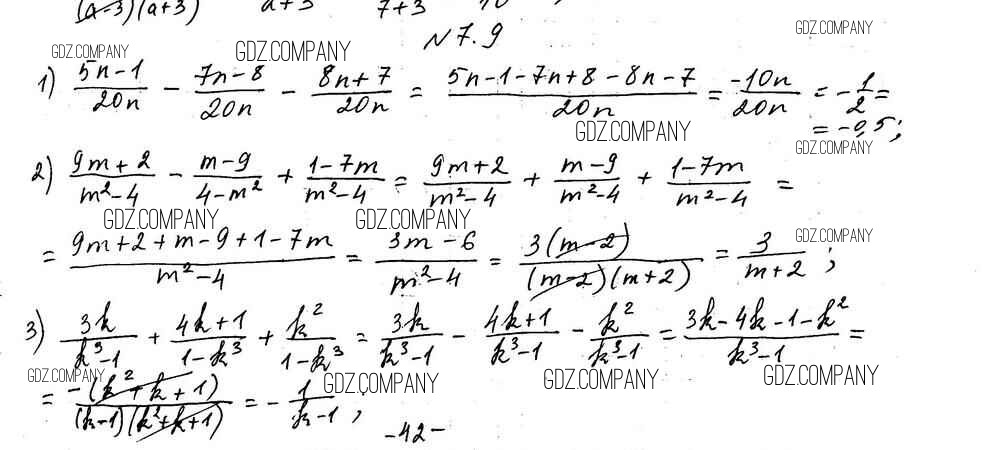 (a-3)(a+3) a+3 7+3 10
GDZ.COMPANY
N 7.9
GDZ.COMPANY GDZ.COMPANY
1) (5n-1)/(20n) - (7n-8)/(20n) - (8n+7)/(20n) = (5n-1-7n+8-8n-7)/(20n) = (-10n)/(20n) = -1/2 =
= -0,5;
GDZ.COMPANY GDZ.COMPANY
2) (9m+2)/(m²-4) - (m-9)/(4-m²) + (1-7m)/(m²-4) = (9m+2)/(m²-4) + (m-9)/(m²-4) + (1-7m)/(m²-4) =
GDZ.COMPANY GDZ.COMPANY GDZ.COMPANY
= (9m+2+m-9+1-7m)/(m²-4) = (3m-6)/(m²-4) = (3(m-2))/((m-2)(m+2)) = 3/(m+2);
3) (3k)/(k³-1) + (4k+1)/(1-k³) + (k²)/(1-k³) = (3k)/(k³-1) - (4k+1)/(k³-1) - (k²)/(k³-1) = (3k-4k-1-k²)/(k³-1) =
GDZ.COMPANY GDZ.COMPANY GDZ.COMPANY GDZ.COMPANY
= (-(k²+k+1))/((k-1)(k²+k+1)) = -1/(k-1);
-42-